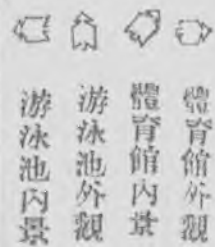 體育館外觀
體育館內景
游泳池外觀
游泳池內景